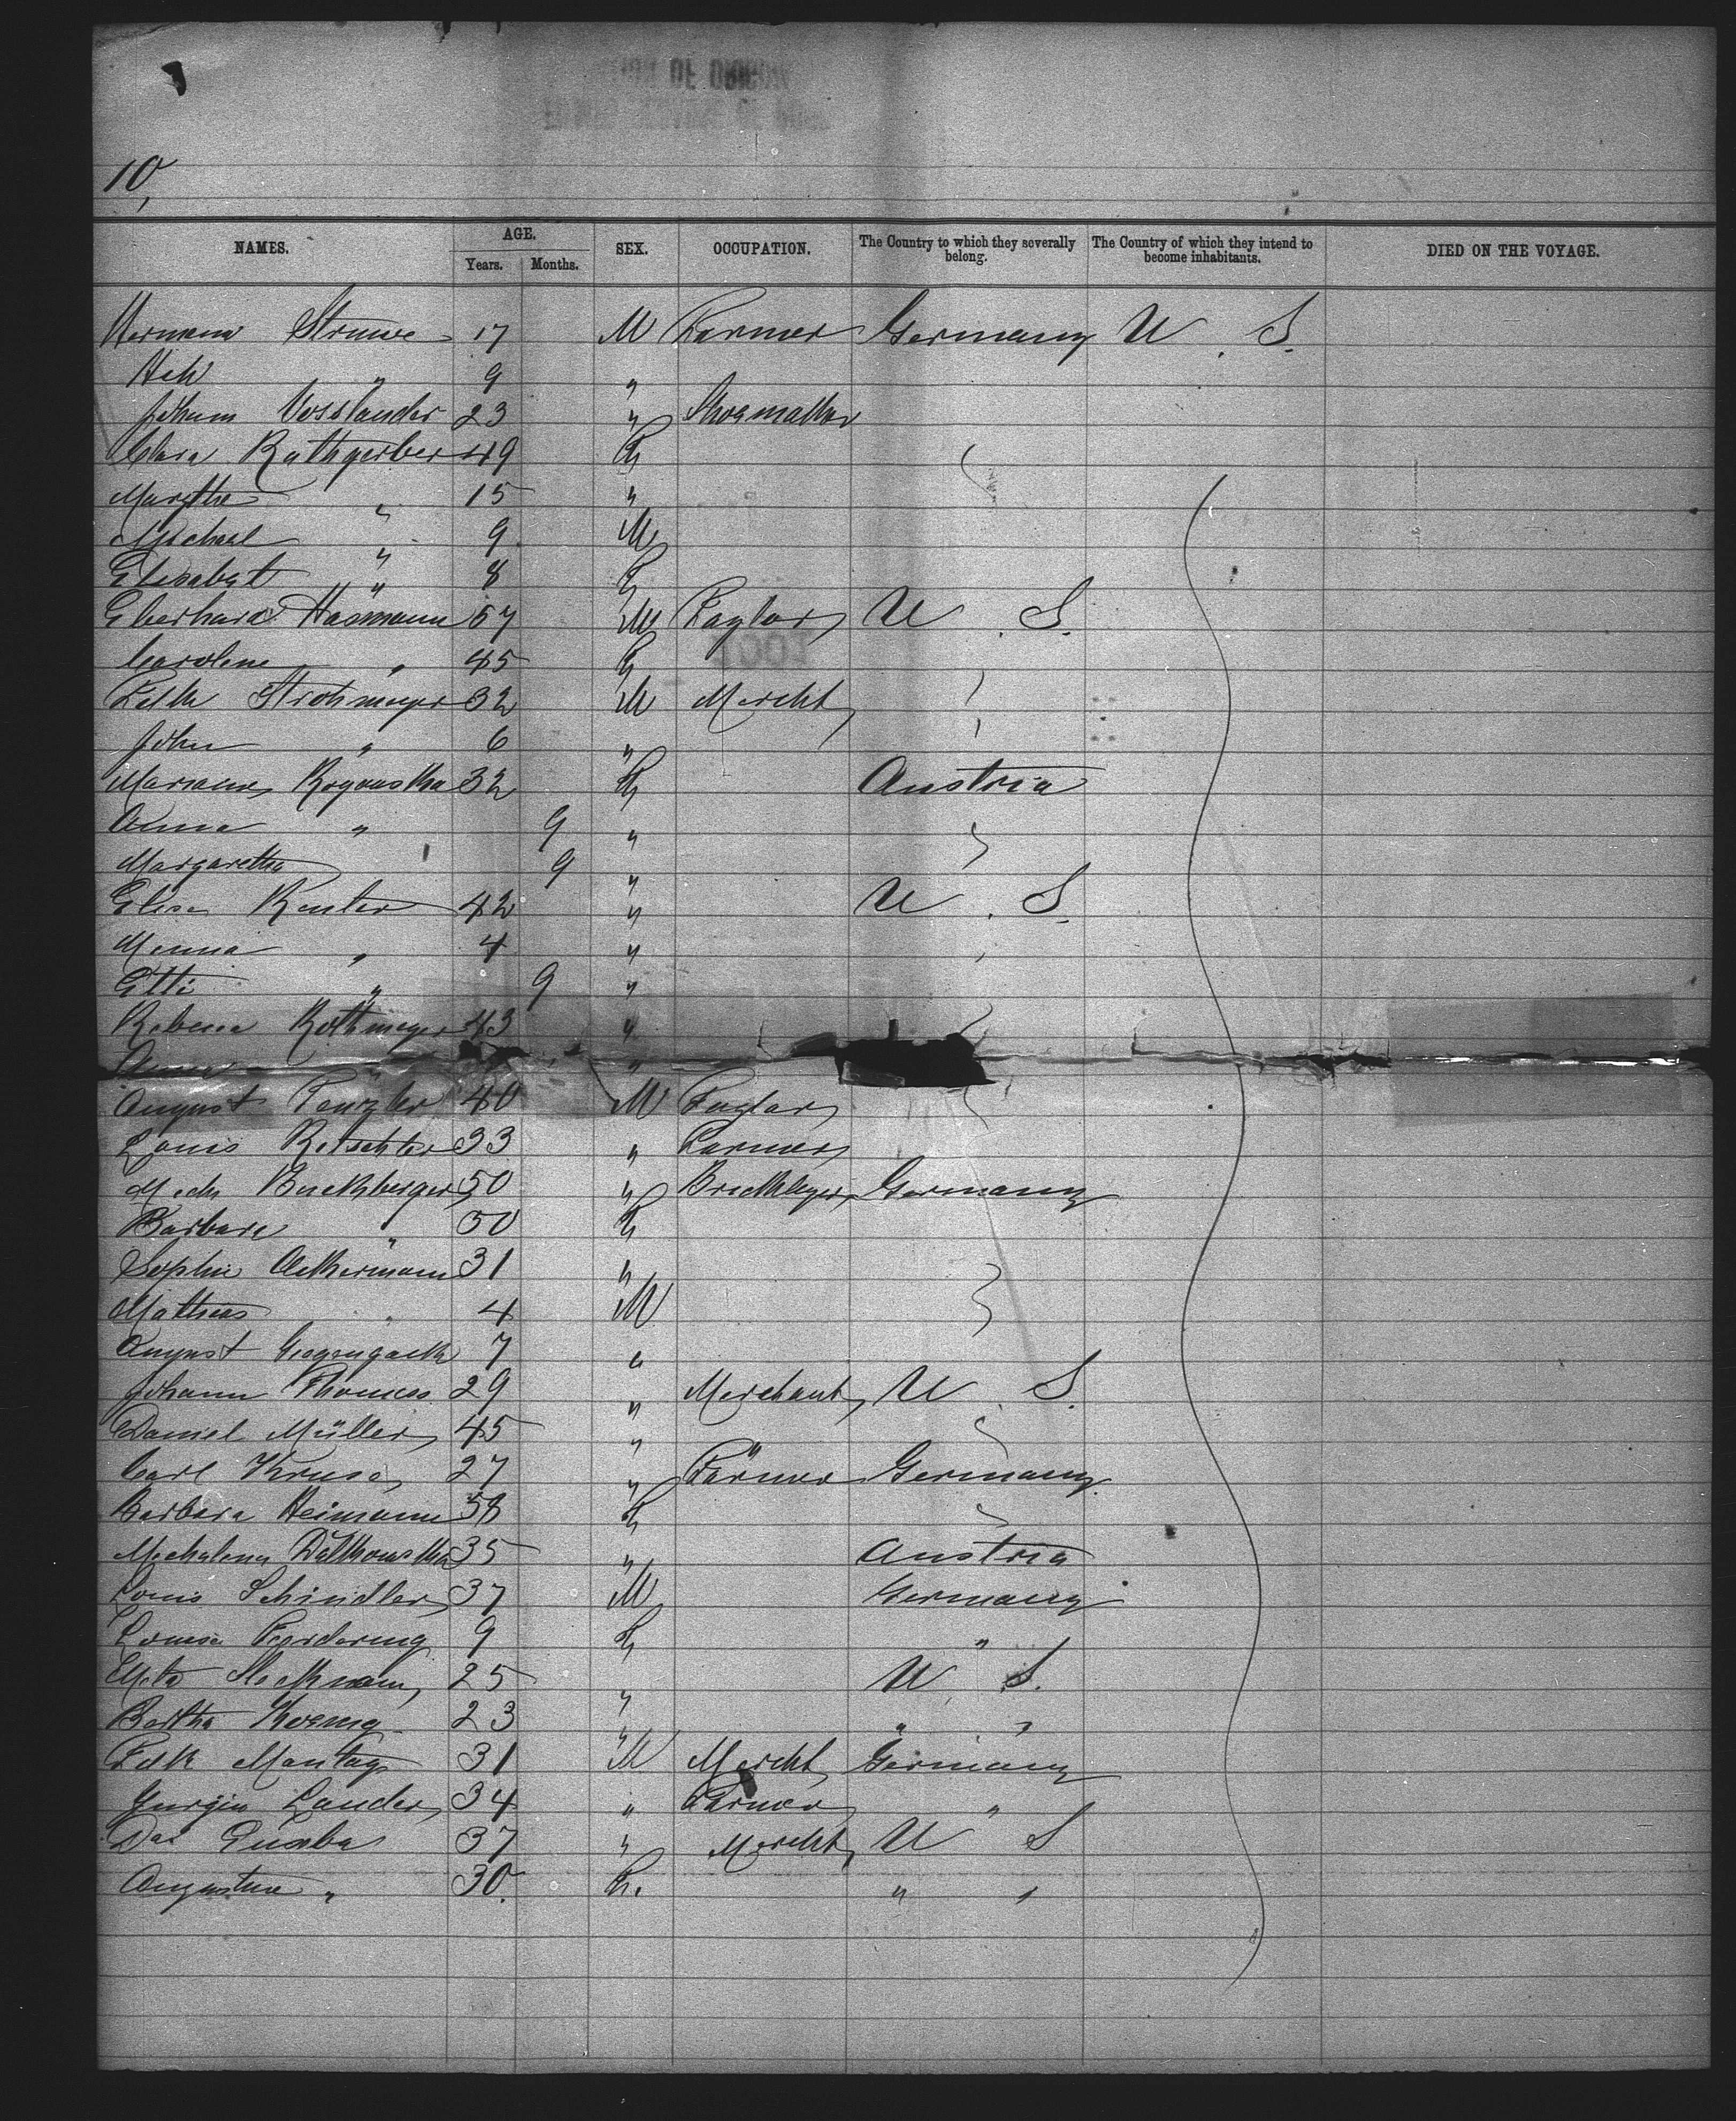 10,
NAMES. AGE. Years. Months. SEX. OCCUPATION. The Country to which they severally belong. The Country of which they intend to become inhabitants. DIED ON THE VOYAGE.
Hermann Struwe 17 M Farmer Germany U. S.
Hch " 9 "
Johann Vosslander 23 " Shoemaker
Clara Rathgerber 49 F
Marythe " 15 "
Michael " 9 M
Elisabet " 8 F
Eberhard Hasmann 57 M Taylor U. S.
Caroline " 45 F
Fdk Strohmeyer 32 M Mercht
John " 6 "
Mariane Rogouska 32 F Austria
Anna " 9 "
Margaretha 9 "
Elise Renter 42 " U. S.
Menna " 4 "
Etti " 9 "
Rebecca Rothmeyer 43 "
" "
August Penzler 40 M Taylor
Louis Retschler 33 " Farmer
Mich Buchberger 50 " Bricklayer Germany
Barbara " 50 F
Sophie Ackermann 31 "
Mathias " 4 M
August 7 "
Johann Thomas 29 " Merchant U. S.
Daniel Müller 45 "
Carl Kruse 27 " Farmer " Germany
Barbara Heimann 58 F
Michalena 35 " Austria
Louis Schindler 37 M Germany
Louise 9 F "
Meta 25 " U. S.
Bertha Koenig 23 " " "
Fdk Montag 31 M Mercht Germany
Jurgen Lander 34 " Farmer "
37 " Mercht U S
Augustine " 30. F. " "